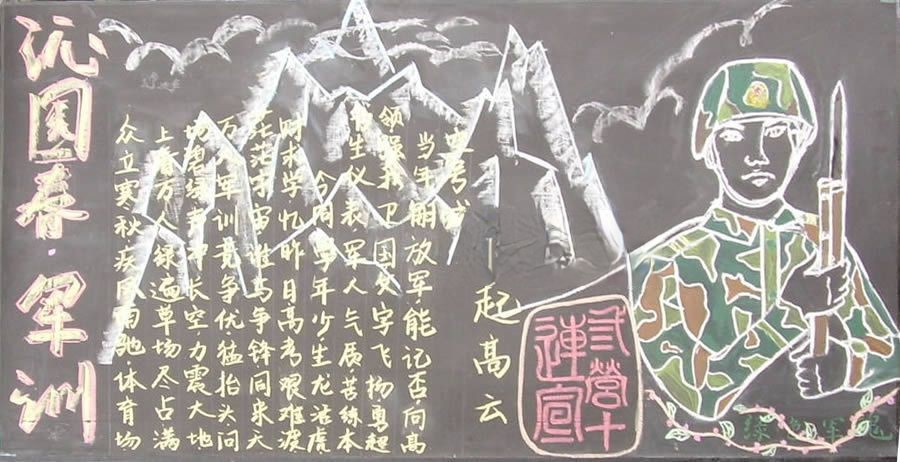 沁园春·军训
众立寒秋疾风雨驰体育场
上看万人绿遍草场尽占满
场碧绿声长空力震大地
万人军训竞争优猛抬头问
茫茫宇宙谁与争锋同来
求学忆昨日高考艰难渡
今周年少生龙活虎
书生仪表军人气质苦练本
领强我卫国文字飞扬勇超
当年放军能记否向高
起高云
营十连宣
绿色军魂